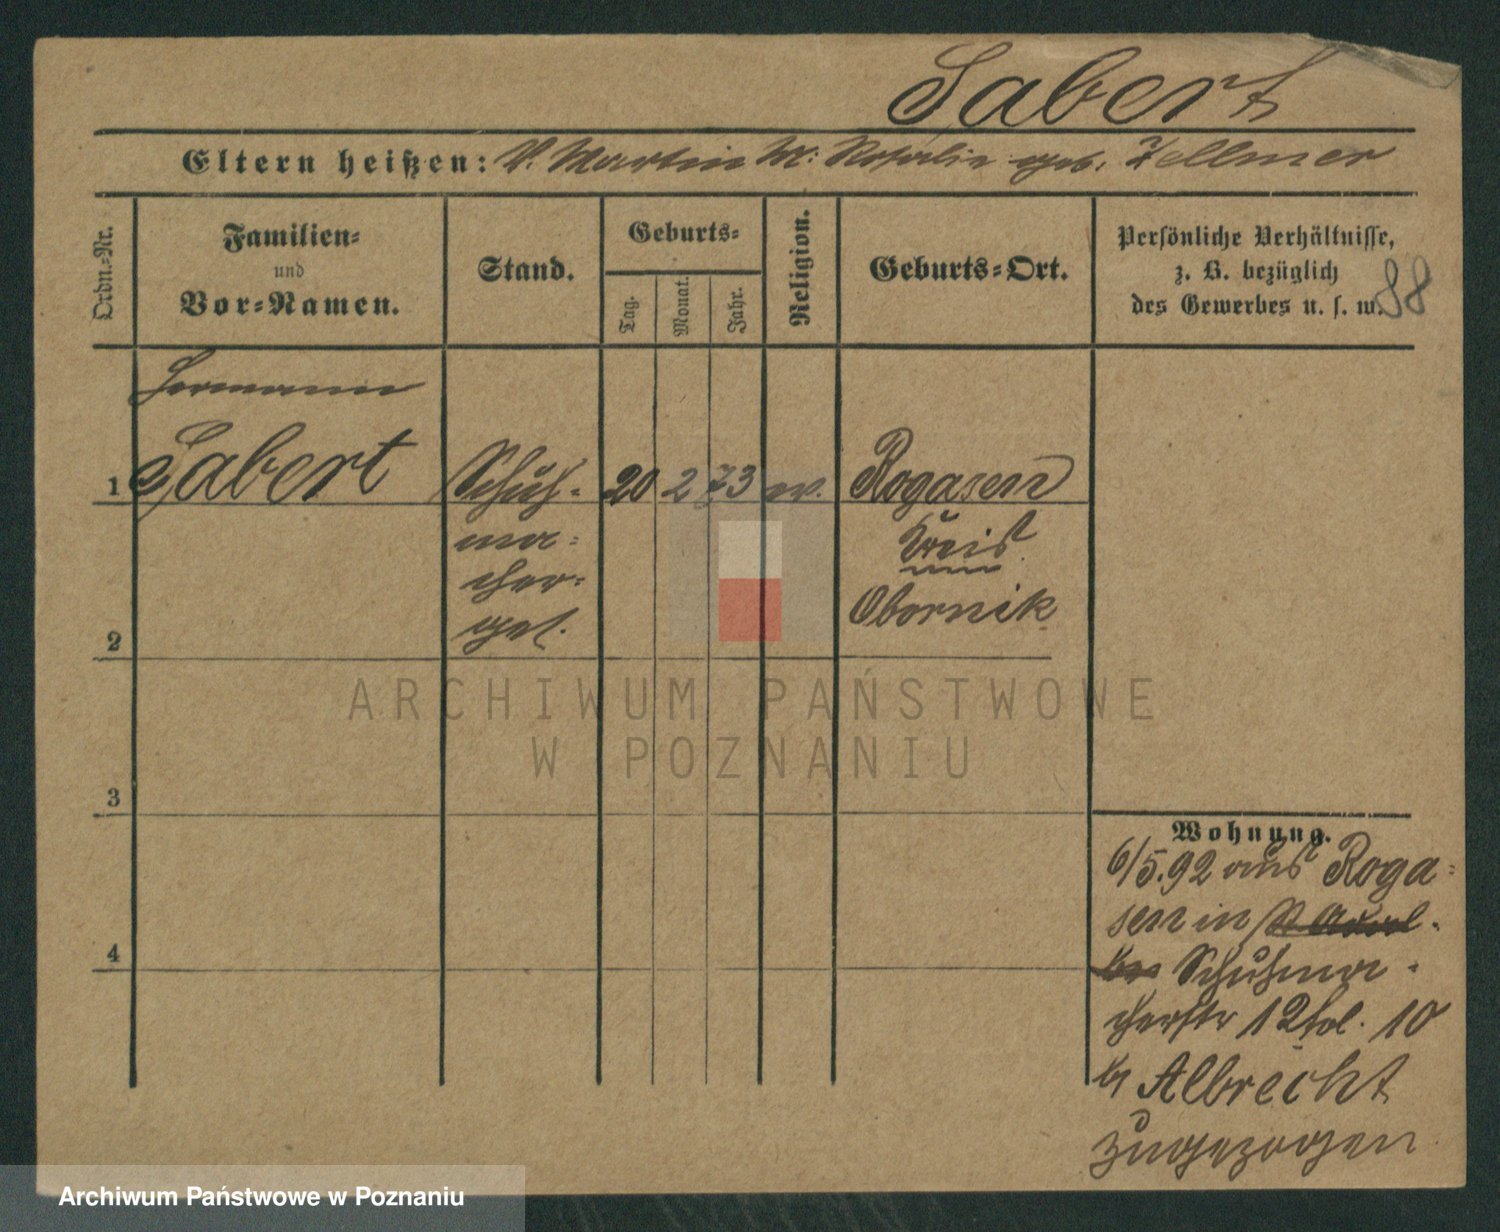 Sabert
Eltern heißen: V. Martin M: Rosalie geb. Zellmer
Ordn.-Nr.
Familien-
und
Vor-Namen.
Stand.
Geburts-
Tag.
Monat.
Jahr.
Religion.
Geburts-Ort.
Persönliche Verhältnisse,
z. B. bezüglich
des Gewerbes u. s. w.
88
Hermann
1 Sabert Schuh- 20 2 73 ev. Rogasen
ma- Kreis
cher- Obornik
ges.
2
3
4
Wohnung.
6/5.92 aus Roga-
sen in
Schuhma-
cherstr 12 fol. 10
by Albrecht
zugezogen
ARCHIWUM PAŃSTWOWE
W POZNANIU
Archiwum Państwowe w Poznaniu